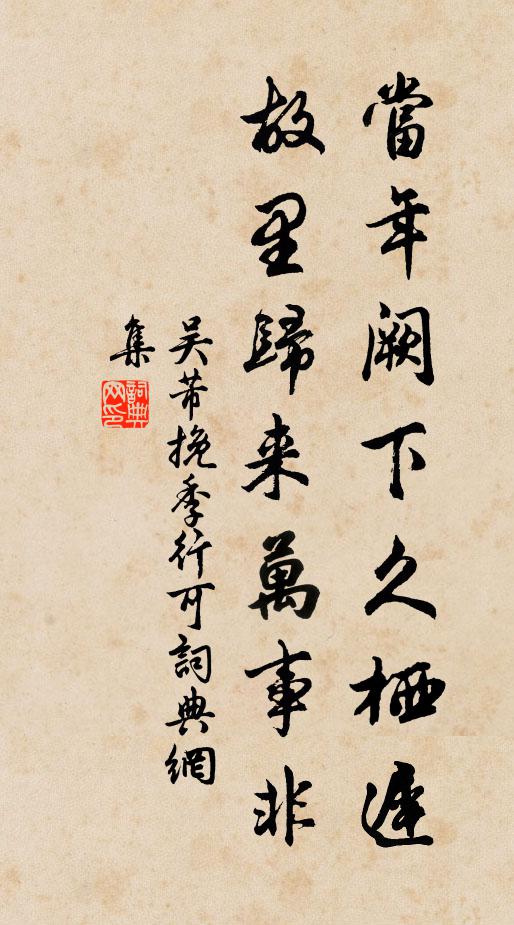 當年闕下久栖遲
故里歸来萬事非
吴芾挽季行可詞典網
集
詞典網印